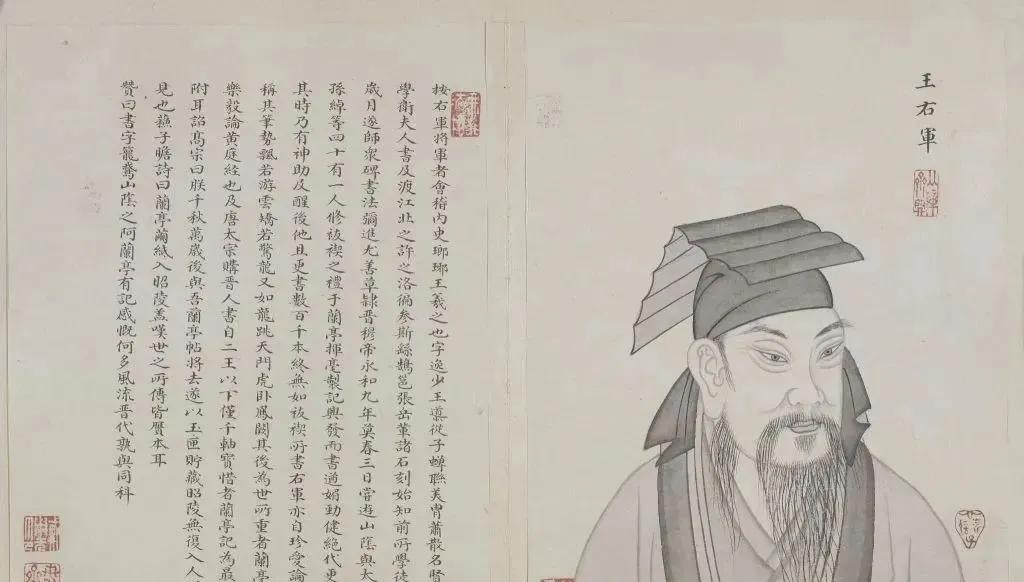 王右軍
按右軍將軍者會稽內史瑯琊王羲之也字逸少王導從子蟬聯美胄蕭散名賢
學衛夫人書及渡江北之許之洛徧叅斯繇鵠邕張岳華諸石刻始知前所學徒
歲月遂師衆碑書法彌進尤善草隸晉穆帝永和九年莫春三日嘗遊山陰與太
孫綽等四十有一人修祓禊之禮于蘭亭揮毫製記興發而書遒媚勁健絕代更
其時乃有神助及醒後他且更書數百千本終無如祓禊所書右軍亦自珍愛論
稱其筆勢飄若游雲矯若驚龍又如龍跳天門虎卧鳳閣其後為世所重者蘭亭
樂毅論黃庭経也及唐太宗購晉人書自二王以下僅千軸寳惜者蘭亭記為最
附耳詔高宗曰朕千秋萬歲後與吾蘭亭帖將去遂以玉匣貯藏昭陵無復入人
見也蘓子瞻詩曰蘭亭繭紙入昭陵盖嘆世之所傳皆贋本耳
贊曰書字籠鵞山陰之阿蘭亭有記感慨何多風流晉代孰與同科